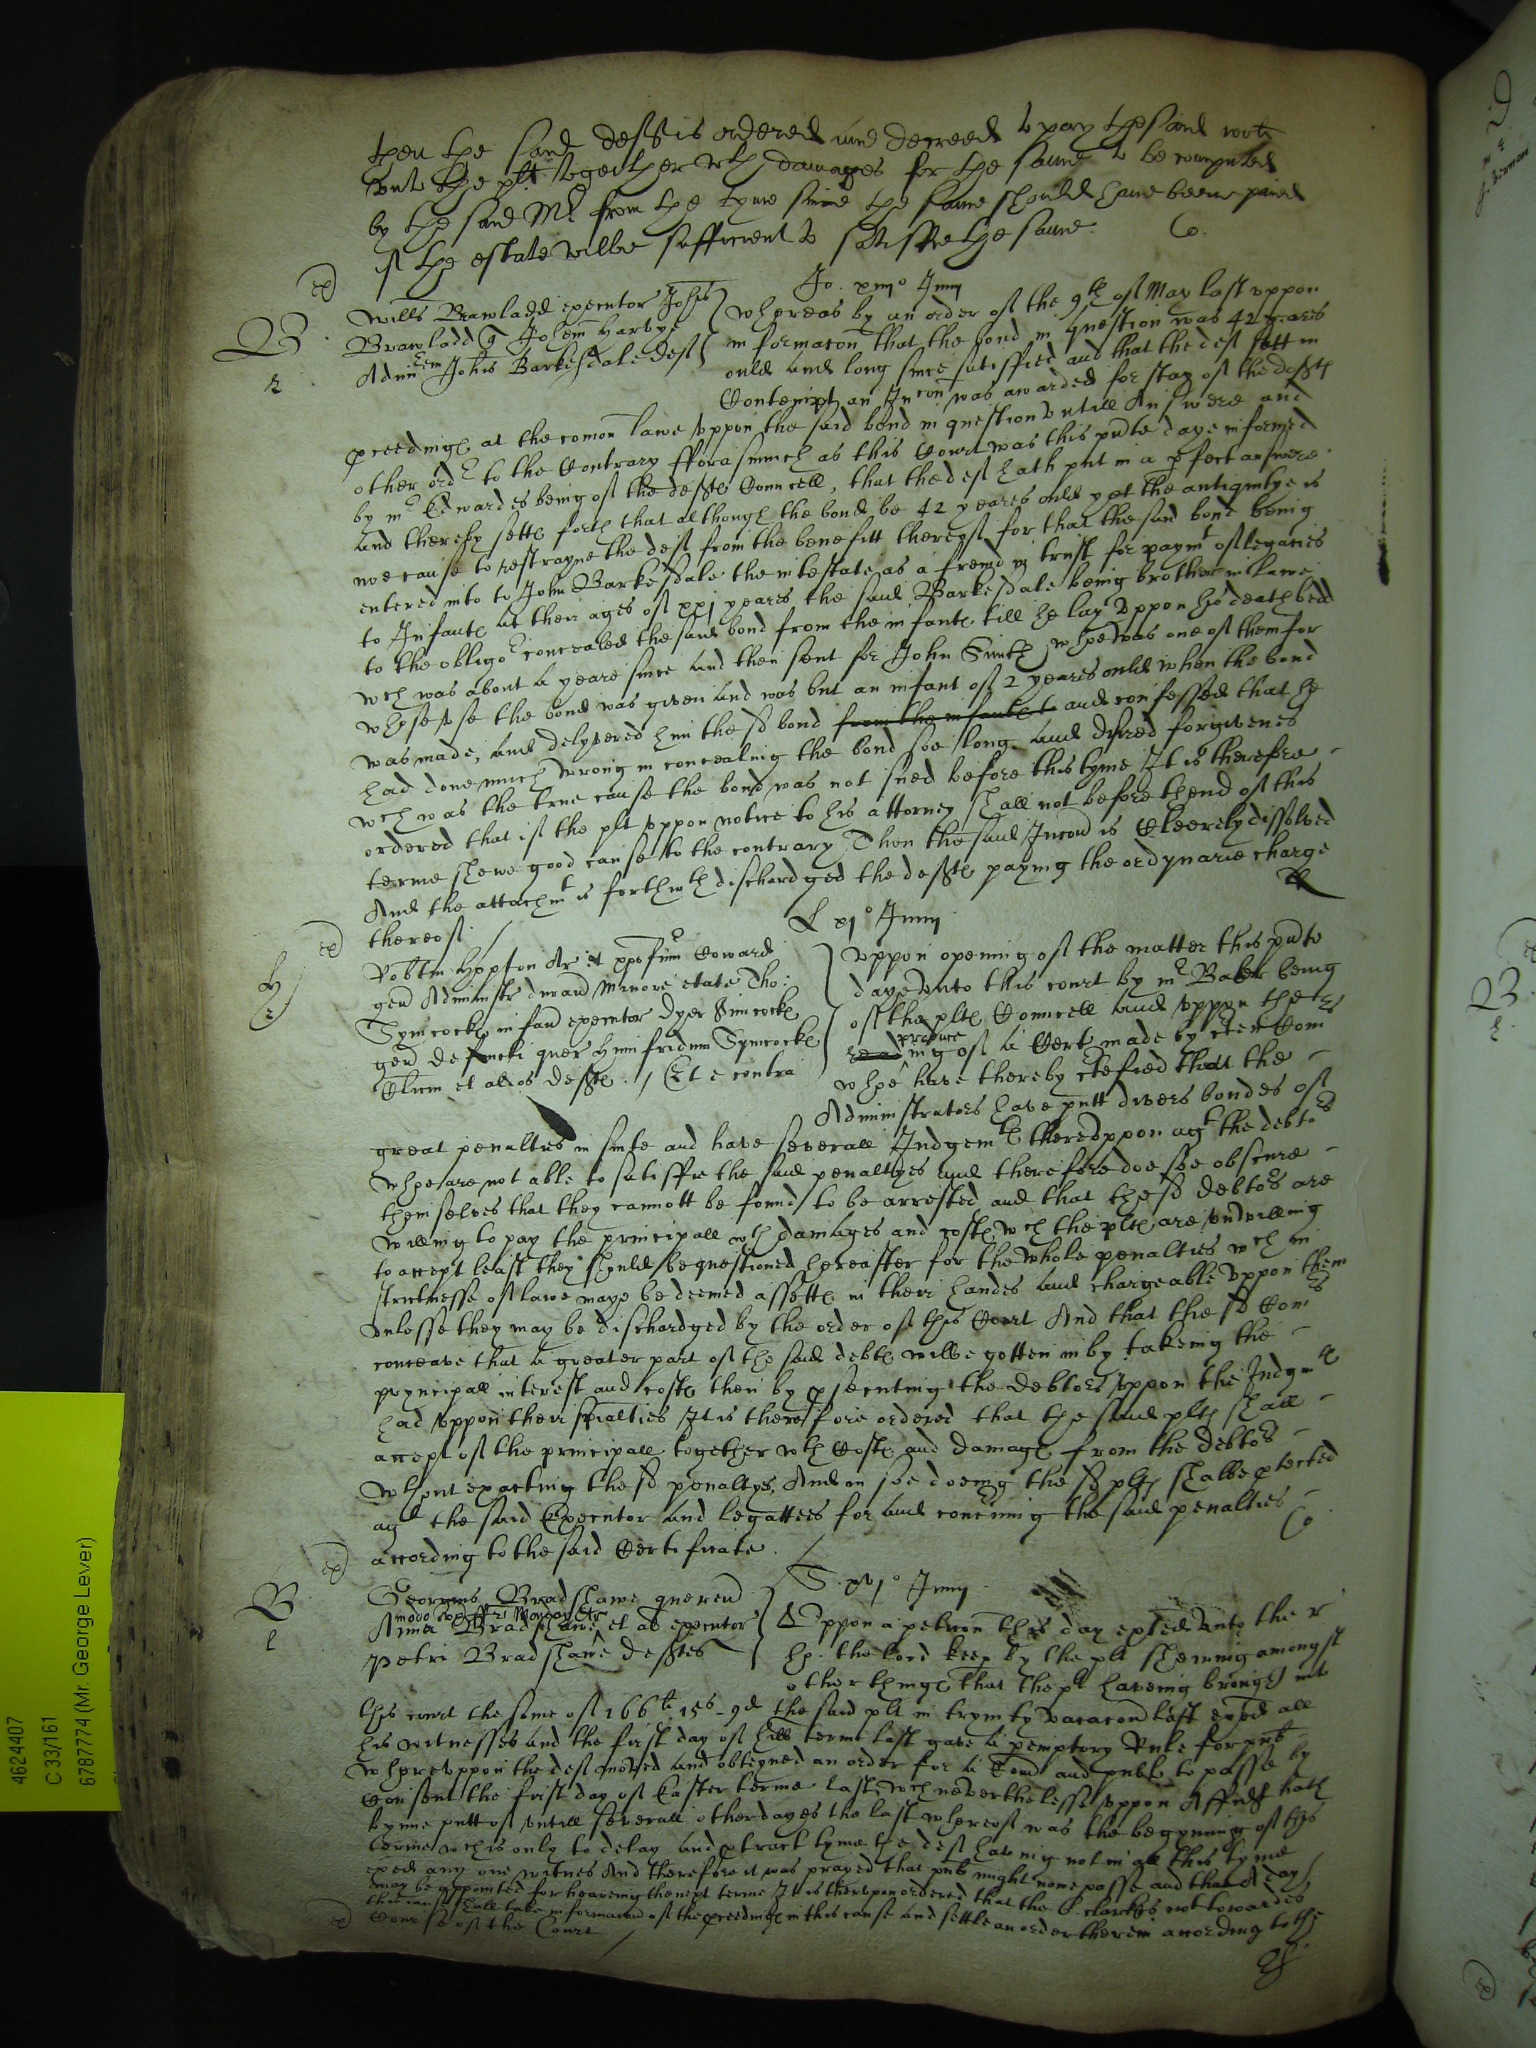 then the said defts is ordered and decreed to pay the said
unto the plt together wth damages for the same to be computed
by the said Mr from the tyme since the same should have beene paied
if the estate wilbe sufficient to satisfie the same. Co.
Jo. xiijo Junij
Wills Brawladd executor Johis
Brawladd q Johem Harbye
Admrem Johis Barkesdale deft
whereas by an order of the 9th of May last uppon
informacon that the bond in question was 42 yeares
ould and long since satisfied and that the deft satt in
Contempt an Incon was awarded for stay of the defts
pceedings at the comon lawe uppon the said bond in question untill Answere and
other ordr to the Contrary fforasmuch as this Court was this pnte daye informed
by mr Edwardes being of the defts Councell, that the deft hath put in a pfect answere
and thereby setts forth that although the bond be 42 yeares ould yet the antiquitye is
noe cause to restrayne the deft from the benefitt thereof for that the said bond being
entered into to John Barkesdale the intestate as a freind in trust for paymt of legacies
to Infants at their ages of xxj yeares the said Barkesdale being brother in lawe
to the obligor concealed the said bond from the infants till he lay uppon his death bedd
wch was about a yeare since and then sent for John Smith whoe was one of them for
whose use the bond was given and was but an infant of 2 yeares ould when the bond
was made, and delyvered him the sd bond from the infants to and confessed that he
had done much wrong in concealing the bond soe long and desired forgivenes
wch was the true cause the bond was not sued before this tyme It is therefore
ordered that if the plt uppon notice to his attorney shall not before thend of this
terme shewe good cause to the contrary, Then the said Incon is Cleerely dissolved
And the attachmt is forthwth dischardged the defts paying the ordynarie charge
thereof.
L xjo Junij
Robtm Hopton Ar et Coward
gen Administr durand minore etate Tho:
Symcocks infan executor Dyer Simcocks
gen defuncti quer Humfridum Symcocks
Clicm et alios defts. / Et e contra
Uppon opening of the matter this pnte
daye unto this court by mr Baker being
of the plts Councell and uppon the
read produceing of a Cert made by certen Comrs
whoe have thereby certefied that the
Administrators have putt divers bondes of
great penalties in suite and have severall Judgemts thereuppon agt the debtors
whoe are not able to satisfie the said penaltyes and therefore doe soe obscure
themselves that they cannott be found to be arrested and that the sd debtors are
willing to pay the principall wth damages and costs wch the plts are unwilling
to accept least they should be questioned hereafter for the whole penalties wch in
strictnesse of lawe maye be deemed assetts in their handes and chargeable uppon them
unlesse they may be dischardged by the order of this Court And that the sd Comrs
conceave that a greater part of the said debts wilbe gotten in by takeing the
pryncipall interest and costs then by psecuting the debtors uppon the Judgmts
had uppon their spialties It is therefore ordered that the said plts shall
accept of the principall together wth Costs and damages from the debtors
wthout exacting the sd penaltyes, And in soe doeing the sd plts shalbe ptected
agt the said Executor and legattees for and concerning the said penalties
according to the said Certificate. Co
S. xvjo Junij
Georgius Bradshawe quer
Anna Bradshawe et ad executor
Petri Bradshawe deftes
Uppon a peticon this day exhited unto the r
ho: the Lord keep by the plt shewing amongst
other things that the plt haveing brought into
this court the some of 166li 15s-9d the said plt in trynity vacacon last exed all
his witnesses and the first day of Hill terme last gave a pemptory Rule for pub
whereuppon the deft moved and obteyned an order for a Com and publ to passe by
Consent the first day of Easter terme last, wch neverthelesse uppon Affidt hath
byne putt of untill severall other dayes the last whereof was the begynning of this
terme wch is only to delay and ptract tyme the deft having not in all this tyme
exed any one witnes And therefore it was prayed that pub might nowe passe and that a day
may be appointed for heareing the next terme It is thereupon ordered that the clarkes not towardes
the cause shall take informacon of the pceedings in this cause and settle an order therein according to the
Course of the Court
4624407
C 33/161
6787774 (Mr. George Lever)